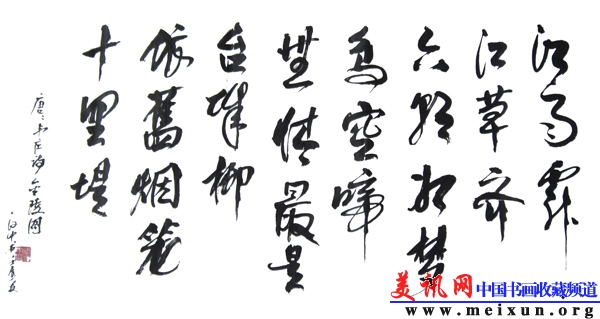 江雨霏
江草齐
六朝如梦
鸟空啼
無情最是
台城柳
依舊烟笼
十里堤
唐韦庄诗金陵图
美讯网 中国书画收藏频道
www.meixun.org